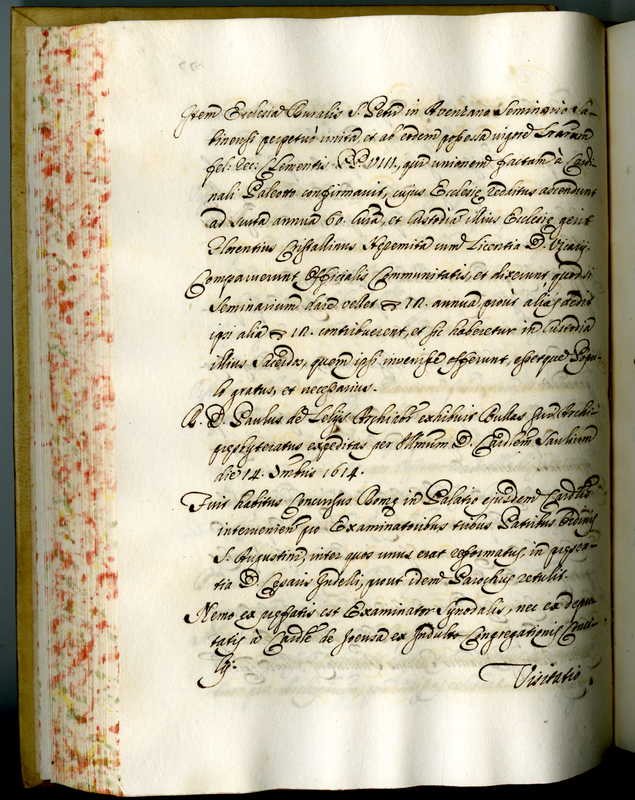 Item Ecclesia Ruralis S. Petri in Avenzano Seminario Sa-
tinensi perpetuò unita, et ab eodem possessa vigore Lrarum
fel: rec: Clementis PP. VIII, qui unionem factam à Cardi-
nali Paleotto confirmavit, cuius Ecclesię redditus ascendunt
ad scuta annua 60. Curã, et Custodiã illius Ecclesię gerit
Florentius Cristallinus Heremita cum licentia D. Vicarij.
Comparuerunt Officialis Communitatis, et dixerunt quod si
Seminarium dare vellet 12. annua, prout aliàs dedit
ipsi alia 12. contribuerent, et sic haberetur in Custodia
illius Sacerdos, quem ipsi invenisse asserunt, essetque Popu-
lo gratus, et necessarius.
R. D. Paulus de Lelijs Archicbr exhibuit Bullas sui Archi-
presbyteratus expeditas per Illmum D. Cardlem Saulium
die 14. Xmbris 1614.
Fuit habitus Concursus Romę in Palatio eiusdem Cardlis
intervenien pro Examinatoribus tribus Patribus Ordinis
S. Augustini, inter quos unus erat reformatus, in pręsen-
tia D. Cesaris Indelli, prout idem Parochus retulit.
Nemo ex pręfatis est Examinator Synodalis, nec ex depu-
tatis à Cardle de Joensa ex Indulto Congregationis Conci-
lij.
Visitatio